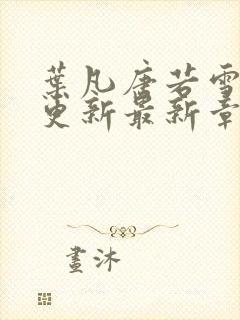 葉凡唐若雪
更新最新章
畫沐